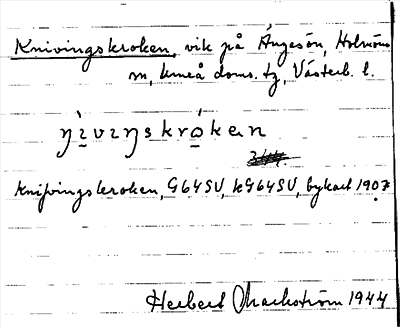 Knivingskroken, vik på Ängesön, Holmöns
sn, Umeå doms. tg, Västerb. l.
ŋìvɪŋskrókən
Knifvingskroken, G64SV, kG64SV, bykart 1907
Herbert Markström 1944